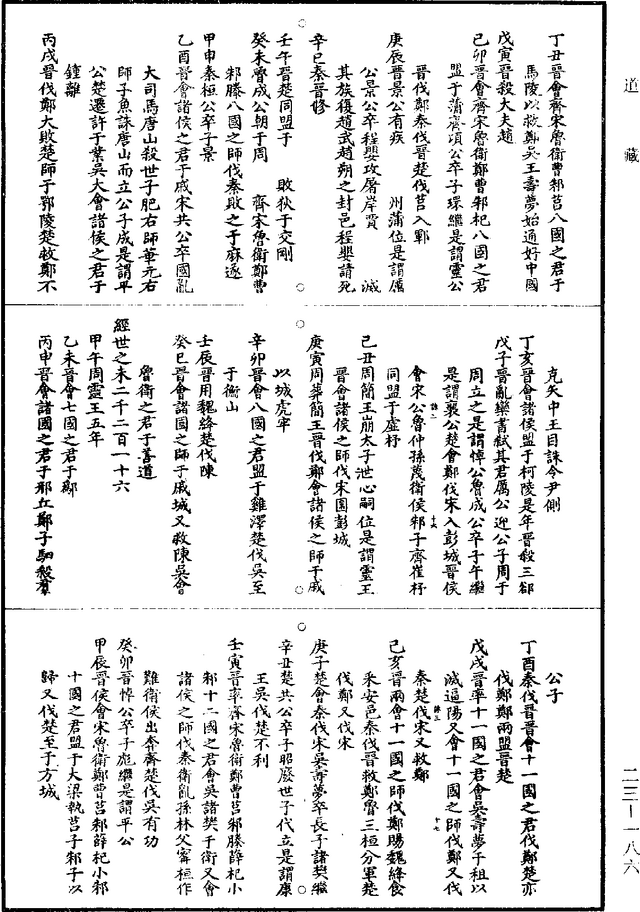 道藏
丁丑晉會齊宋魯衛曹邾莒八國之君于
馬陵以救鄭吳王壽夢始通好中國
戊寅晉殺大夫趙
己卯晉會齊宋魯衛鄭曹邾杞八國之君
盟于蒲齊頃公卒子環繼是謂靈公
晉伐鄭秦伐晉楚伐莒入鄆
庚辰晉景公有疾 州蒲位是謂厲
公景公卒程嬰攻屠岸賈 滅
其族復趙武趙朔之封邑程嬰請死
辛巳秦晉修
壬午晉楚同盟于 敗狄于交剛
癸未魯成公朝于周 齊宋魯衛鄭曹
邾滕八國之師伐秦敗之于麻遂
甲申秦桓公卒子景
乙酉晉會諸侯之君于戚宋共公卒國亂
大司馬唐山殺世子肥右師華元右
師子魚誅唐山而立公子成是謂平
公楚遷許于葉吳大會諸侯之君于
鍾離
丙戌晉伐鄭大敗楚師于鄢陵楚救鄭不
克矢中王目誅令尹側
丁亥晉會諸侯盟于柯陵是年晉殺三郤
戊子晉亂欒書弒其君厲公迎公子周于
周立之是謂悼公魯成公卒子午繼
是謂襄公楚會鄭伐宋入彭城晉侯
會宋公魯仲孫蔑衛侯邾子齊崔杼
同盟于虛朾
己丑周簡王崩太子泄心嗣位是謂靈王
晉會諸侯之師伐宋圍彭城
庚寅周葬簡王晉伐鄭會諸侯之師于戚
以城虎牢
辛卯晉會八國之君盟于雞澤楚伐吳至
于衡山
壬辰晉用魏絳楚伐陳
癸巳晉會諸國之師于戚城又救陳吳會
魯衛之君于善道
經世之未二千二百一十六
甲午周靈王五年
乙未晉會七國之君于鄬
丙申晉會諸國之君于邢丘鄭子駟殺羣
公子
丁酉秦伐晉晉會十一國之君伐鄭楚亦
伐鄭鄭兩盟晉楚
戊戌晉率十一國之君會吳壽夢于柤以
滅偪陽又會十一國之師伐鄭又伐
秦楚伐宋又救鄭
己亥晉兩會十一國之師伐鄭賜魏絳食
采安邑秦伐晉救鄭魯三桓分軍楚
伐鄭又伐宋
庚子楚會秦伐宋吳壽夢卒長子諸樊繼
辛丑楚共公卒子昭廢世子代立是謂康
王吳伐楚不利
壬寅晉率齊宋魯衛鄭曹莒邾滕薛杞小
邾十二國之君會吳諸樊于衛又會
諸侯之師伐秦衛亂孫林父甯桓作
難衛侯出奔齊楚伐吳有功
癸卯晉悼公卒子彪繼是謂平公
甲辰晉侯會宋魯衛鄭曹莒邾薛杞小邾
十國之君盟于大梁執莒子邾子以
歸又伐楚至于方城
二三—一八六